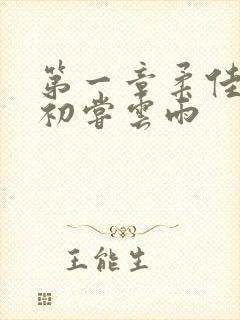 第一章柔佳
初尝雲雨
王能生